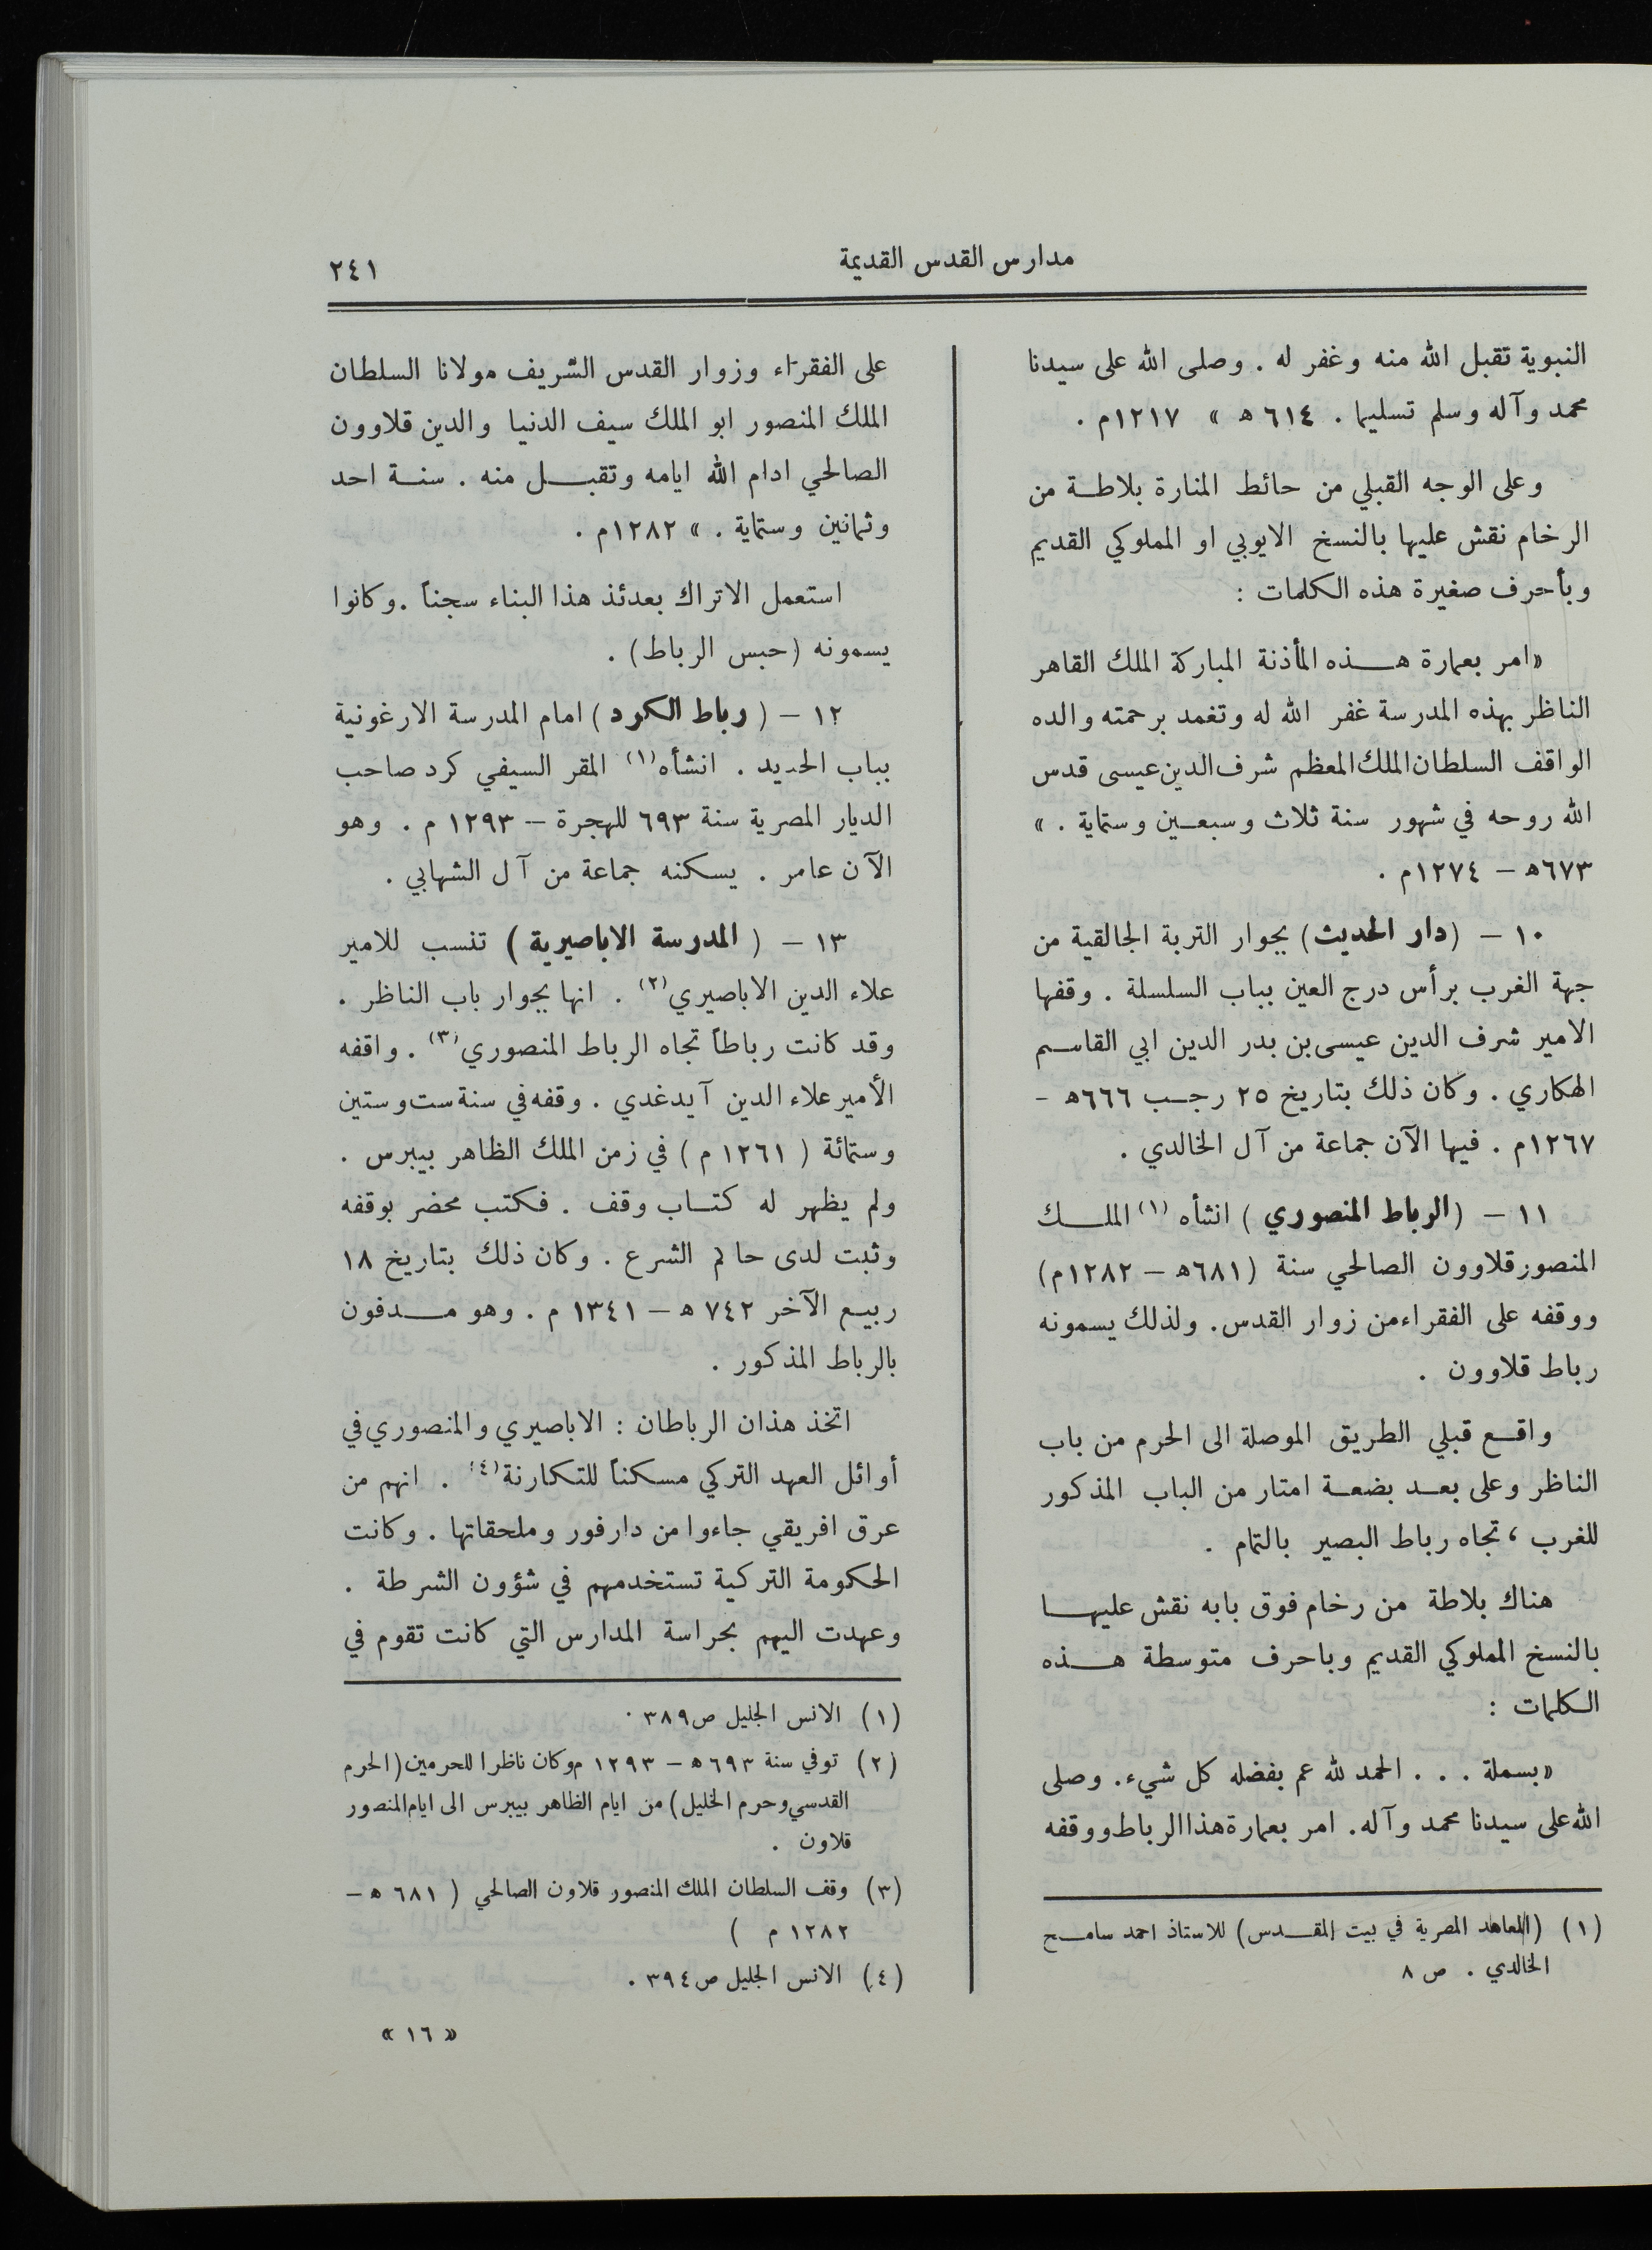 مدارس القدس القديمة
٢٤١
النبوية تقبل الله منه وغفر له . وصلى الله على سيدنا
محمد وآله وسلم تسليما . ٦١٤ ه » ١٢١٧م .
وعلى الوجه القبلي من حائط المنارة بلاطة من
الرخام نقش عليها بالنسخ الايوبي او المملوكي القديم
وبأحرف صغيرة هذه الكلمات :
«امر بعمارة هذه المأذنة المباركة الملك القاهر
الناظر بهذه المدرسة غفر الله له وتغمد برحمته والده
الواقف السلطان الملك المعظم شرف الدين عيسى قدس
الله روحه في شهور سنة ثلاث وسبعين وستماية . »
٦٧٣ه – ١٢٧٤م .
١٠ – (دار الحديث) بجوار التربة الجالقية من
جهة الغرب برأس درج العين بباب السلسلة . وقفها
الامير شرف الدين عيسى بن بدر الدين ابي القاسم
الهكاري . وكان ذلك بتاريخ ٢٥ رجب ٦٦٦ه -
١٢٦٧م . فيها الآن جماعة من آل الخالدي .
١١ – (الرباط المنصوري ) انشأه (١) الملك
المنصور قلاوون الصالحي سنة (٦٨١ه – ١٢٨٢م)
ووقفه على الفقراء من زوار القدس. ولذلك يسمونه
رباط قلاوون .
واقع قبلي الطريق الموصلة الى الحرم من باب
الناظر وعلى بعد بضعة امتار من الباب المذكور
للغرب ، تجاه رباط البصير بالتمام .
هناك بلاطة من رخام فوق بابه نقش عليها
بالنسخ المملوكي القديم وباحرف متوسطة هذه
الكلمات :
«بسملة . . . الحمد لله عم بفضله كل شيء. وصلى
الله على سيدنا محمد وآله. امر بعمارة هذا الرباط ووقفه
(١) (المعاهد المصرية في بيت المقدس) للاستاذ احمد سامح
الخالدي . ص ٨
على الفقراء وزوار القدس الشريف مولانا السلطان
الملك المنصور ابو الملك سيف الدنيا والدين قلاوون
الصالحي ادام الله ايامه وتقبل منه . سنة احد
وثمانين وستماية . » ١٢٨٢م .
استعمل الاتراك بعدئذ هذا البناء سجناً .وكانوا
يسمونه (حبس الرباط) .
١٢ – ( رباط الكرد ) امام المدرسة الارغونية
بباب الحديد . انشأه(١) المقر السيفي كرد صاحب
الديار المصرية سنة ٦٩٣ للهجرة – ١٢٩٣ م . وهو
الآن عامر . يسكنه جماعة من آل الشهابي .
١٣ – ( المدرسة الاباصيرية ) تنسب للامير
علاء الدين الاباصيري(٢) . انها بجوار باب الناظر .
وقد كانت رباطاً تجاه الرباط المنصوري(٣) . واقفه
الأمير علاء الدين آيدغدي . وقفه في سنة ست وستين
وستمائة ( ١٢٦١ م ) في زمن الملك الظاهر بيبرس .
ولم يظهر له كتاب وقف . فكتب محضر بوقفه
وثبت لدى حاكم الشرع . وكان ذلك بتاريخ ١٨
ربيع الآخر ٧٤٢ ه – ١٣٤١ م . وهو مدفون
بالرباط المذكور .
اتخذ هذان الرباطان : الاباصيري والمنصوري في
أوائل العهد التركي مسكناً للتكارنة(٤) . انهم من
عرق افريقي جاءوا من دارفور وملحقاتها . وكانت
الحكومة التركية تستخدمهم في شؤون الشرطة .
وعهدت اليهم بحراسة المدارس التي كانت تقوم في
(١) الانس الجليل ص ٣٨٩ .
(٢) توفي سنة ٦٩٣ه – ١٢٩٣ م وكان ناظرا للحرمين (الحرم
القدسي وحرم الخليل) من ايام الظاهر بيبرس الى ايام المنصور
قلاون .
(٣) وقف السلطان الملك المنصور قلاون الصالحي ( ٦٨١ ه –
١٢٨٢ م )
(٤) الانس الجليل ص ٣٩٤ .
« ١٦ »